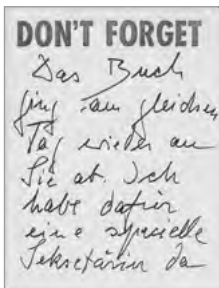 DON'T FORGET
Das Buch
ging am gleichen
Tag wieder an
Sie ab. Ich
habe dafür
eine spezielle
Sekretärin da